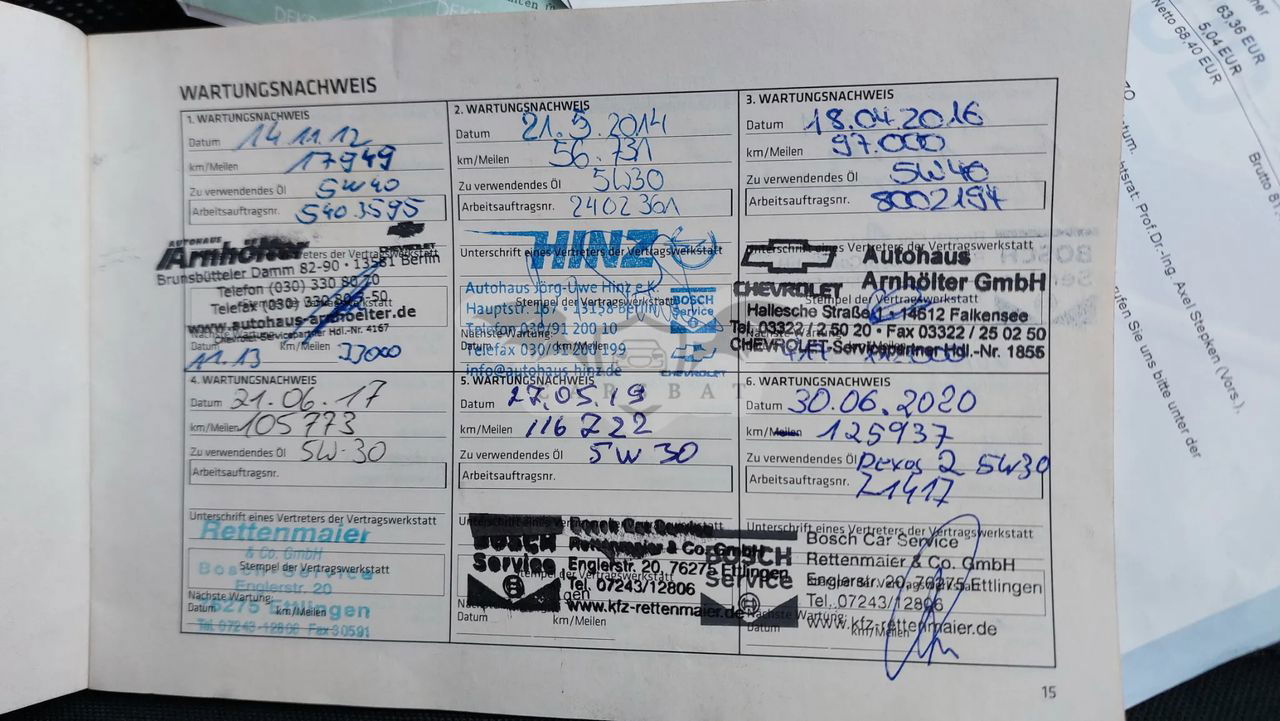 WARTUNGSNACHWEIS
1. WARTUNGSNACHWEIS
Datum 14.11.12
km/Meilen 17949
Zu verwendendes Öl 5W40
Arbeitsauftragsnr. 5403595
AUTOHAUS
Arnhölter
CHEVROLET
Brunsbütteler Damm 82-90 · 13581 Berlin
Telefon (030) 330 80 70
Telefax (030) 330 80 50
www.autohaus-arnhoelter.de
Chevrolet-Servicepartner Hdl.-Nr. 4167
Nächste Wartung
Datum 11.13 km/Meilen 33000
2. WARTUNGSNACHWEIS
Datum 21.5.2014
km/Meilen 56.731
Zu verwendendes Öl 5W30
Arbeitsauftragsnr. 2402361
Unterschrift eines Vertreters der Vertragswerkstatt
HINZ
Autohaus Jörg-Uwe Hinz e.K.
Stempel der Vertragswerkstatt
Hauptstr. 167 · 13158 Berlin
Telefon 030/91 200 10
Telefax 030/91 200 199
info@autohaus-hinz.de
BOSCH
Service
CHEVROLET
3. WARTUNGSNACHWEIS
Datum 18.04.2016
km/Meilen 97.000
Zu verwendendes Öl 5W40
Arbeitsauftragsnr. 8002194
Unterschrift eines Vertreters der Vertragswerkstatt
CHEVROLET
Autohaus
Arnhölter GmbH
Stempel der Vertragswerkstatt
Hallesche Straße 1 · 14612 Falkensee
Tel. 03322 / 2 50 20 · Fax 03322 / 25 02 50
CHEVROLET-Servicepartner Hdl.-Nr. 1855
4. WARTUNGSNACHWEIS
Datum 21.06.17
km/Meilen 105773
Zu verwendendes Öl 5W-30
Arbeitsauftragsnr.
Unterschrift eines Vertreters der Vertragswerkstatt
Rettenmaier
& Co. GmbH
Stempel der Vertragswerkstatt
Bosch Service
Englerstr. 20
76275 Ettlingen
Tel. 07243-12806 Fax 30591
Nächste Wartung:
Datum km/Meilen
5. WARTUNGSNACHWEIS
Datum 27.05.19
km/Meilen 116722
Zu verwendendes Öl 5W30
Arbeitsauftragsnr.
BOSCH
Service
Bosch Car Service
Rettenmaier & Co. GmbH
Englerstr. 20, 76275 Ettlingen
Tel. 07243/12806
www.kfz-rettenmaier.de
Datum km/Meilen
6. WARTUNGSNACHWEIS
Datum 30.06.2020
km/Meilen 125937
Zu verwendendes Öl Dexos 2 5W30
Arbeitsauftragsnr. 71417
Unterschrift eines Vertreters der Vertragswerkstatt
BOSCH
Service
Bosch Car Service
Rettenmaier & Co. GmbH
Englerstr. 20, 76275 Ettlingen
Tel. 07243/12806
www.kfz-rettenmaier.de
Nächste Wartung:
Datum km/Meilen
15
63,36 EUR
5,04 EUR
Netto 68,40 EUR
Brutto 81
Prof.Dr.-Ing. Axel Stepken (Vors.),
fen Sie uns bitte unter der